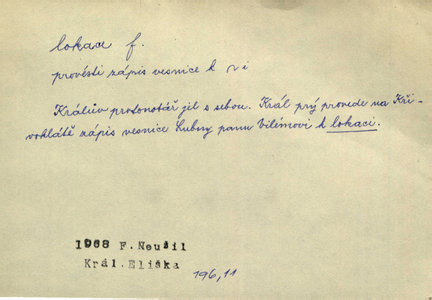 lokace f.
provésti zápis vesnice k r i
Králův protonotář jel s sebou. Král prý provede na Kři-
voklátě zápis vesnice Lubny panu Vilémovi k lokaci.
1968 F. Neužil
Král. Eliška
196,11